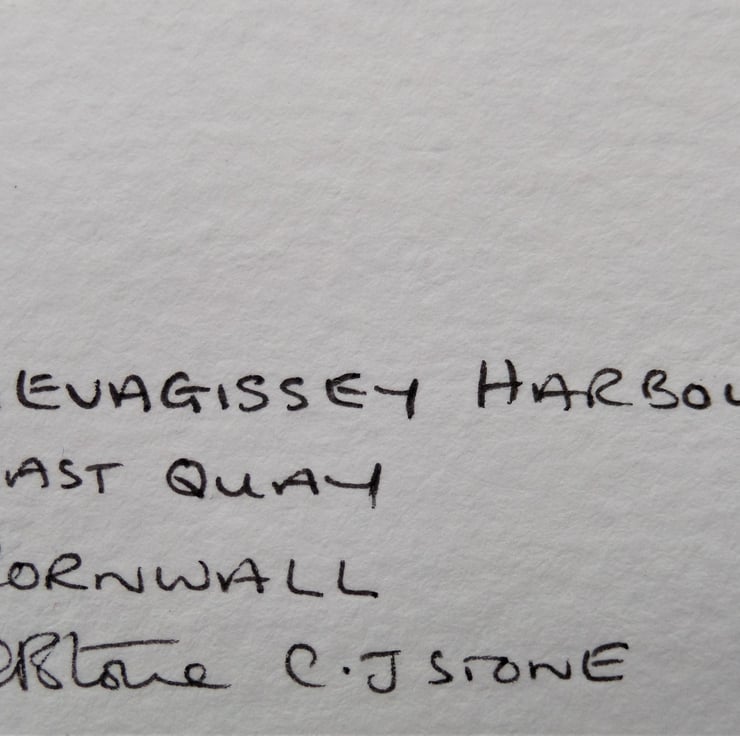 EVAGISSEY HARBOU
AST QUAY
CORNWALL
Stone C.J STONE